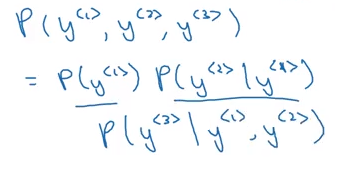 P(y<1>, y<2>, y<3>)
= P(y<1>) P(y<2> | y<1>)
P(y<3> | y<1>, y<2>)